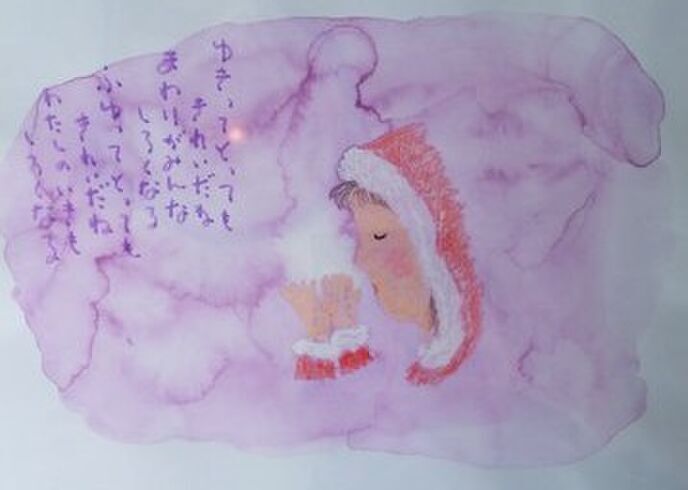 ゆきってとっても
きれいだね
まわりがみんな
しろくなる
ふゆってとっても
きれいだね
わたしのいきも
しろくなる